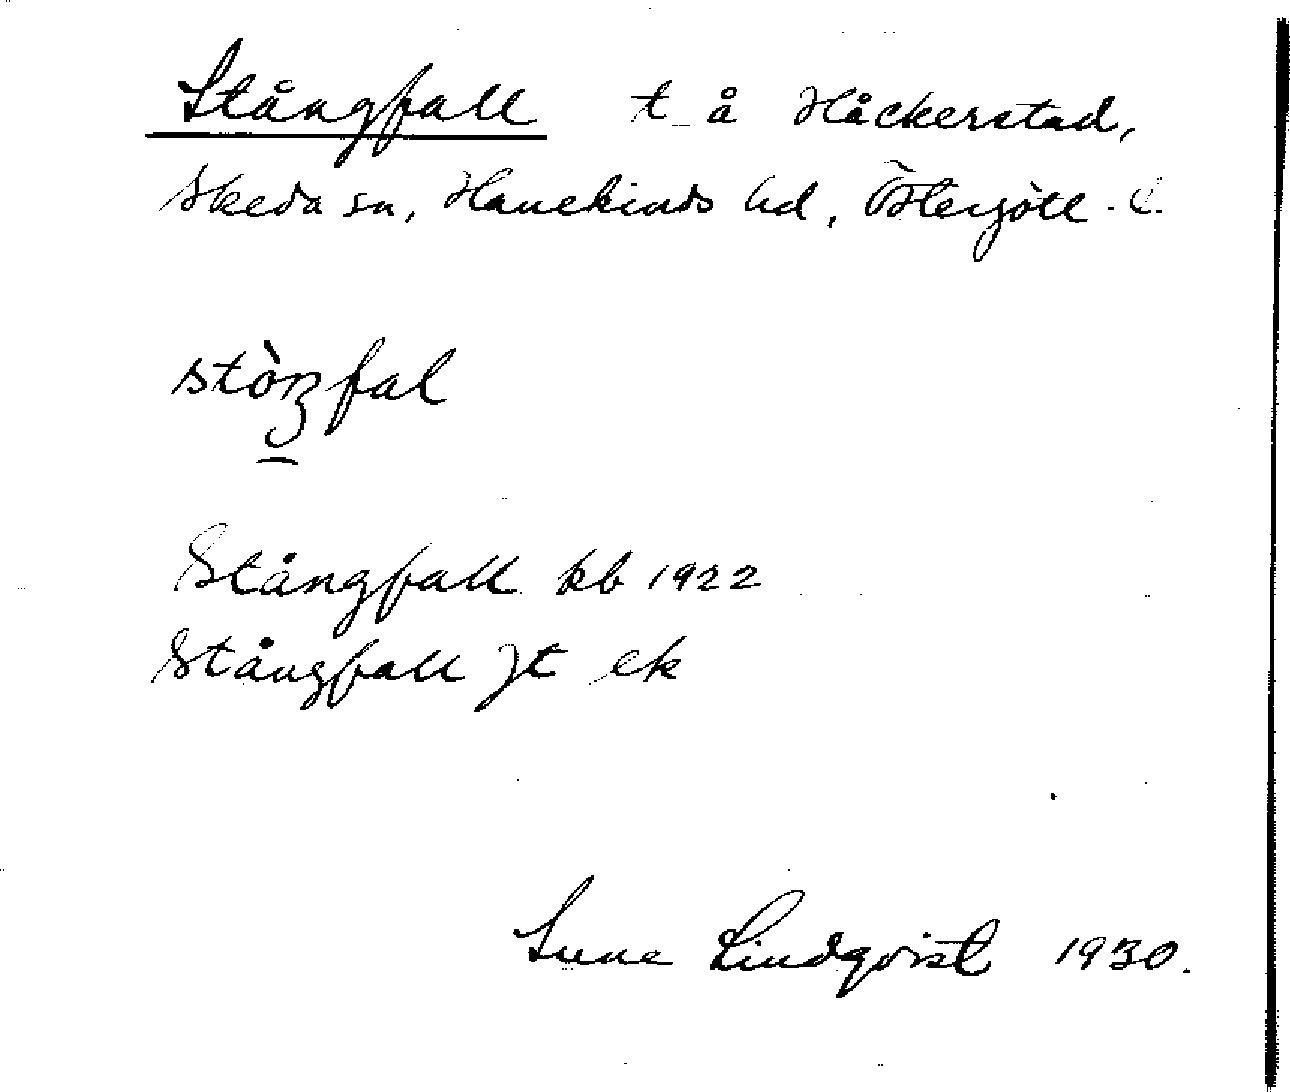 Stångfall t å Håckerstad,
Skeda sn, Hanekinds hd, Östergötl. l.
stòŋfal
Stångfall kb 1922
Stångfall Jt ek
Sune Lindqvist 1930.